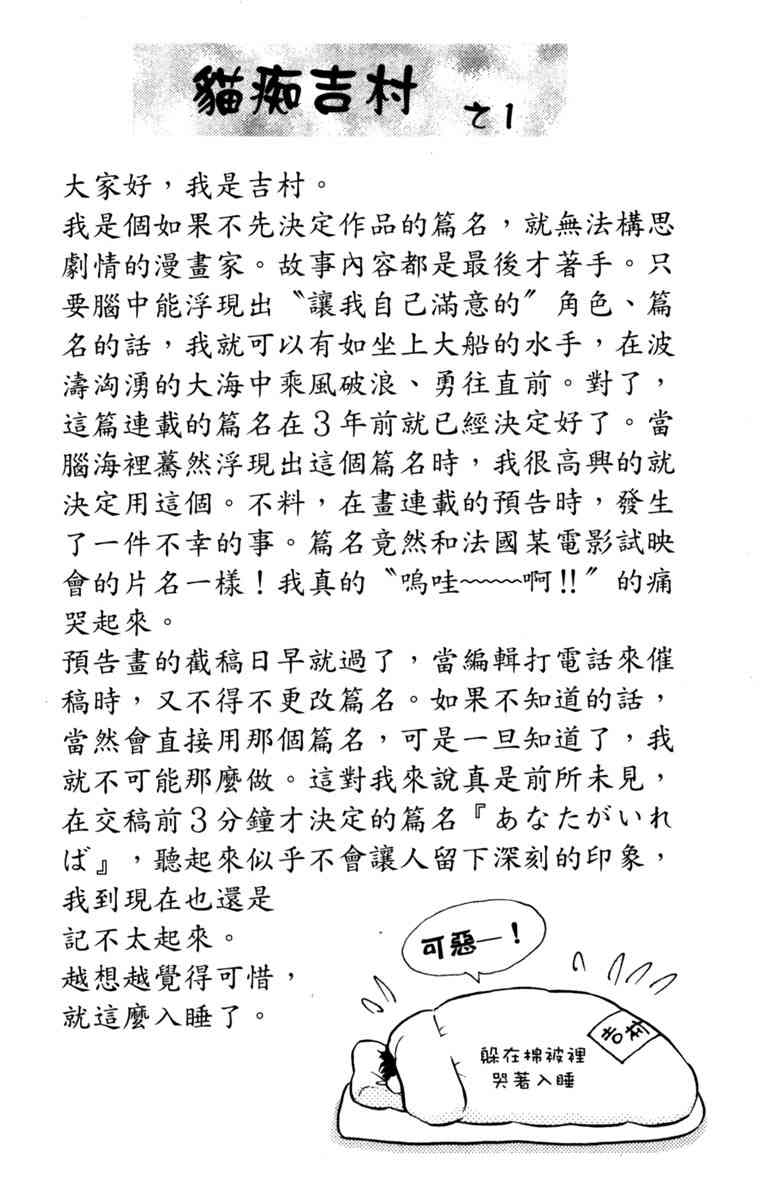 貓痴吉村 之1
大家好，我是吉村。
我是個如果不先決定作品的篇名，就無法構思
劇情的漫畫家。故事內容都是最後才著手。只
要腦中能浮現出〝讓我自己滿意的〞角色、篇
名的話，我就可以有如坐上大船的水手，在波
濤洶湧的大海中乘風破浪、勇往直前。對了，
這篇連載的篇名在3年前就已經決定好了。當
腦海裡驀然浮現出這個篇名時，我很高興的就
決定用這個。不料，在畫連載的預告時，發生
了一件不幸的事。篇名竟然和法國某電影試映
會的片名一樣！我真的〝嗚哇~~~~啊!!〞的痛
哭起來。
預告畫的截稿日早就過了，當編輯打電話來催
稿時，又不得不更改篇名。如果不知道的話，
當然會直接用那個篇名，可是一旦知道了，我
就不可能那麼做。這對我來說真是前所未見，
在交稿前3分鐘才決定的篇名『あなたがいれ
ば』，聽起來似乎不會讓人留下深刻的印象，
我到現在也還是
記不太起來。
越想越覺得可惜，
就這麼入睡了。
可惡—！
吉村
躲在棉被裡
哭著入睡